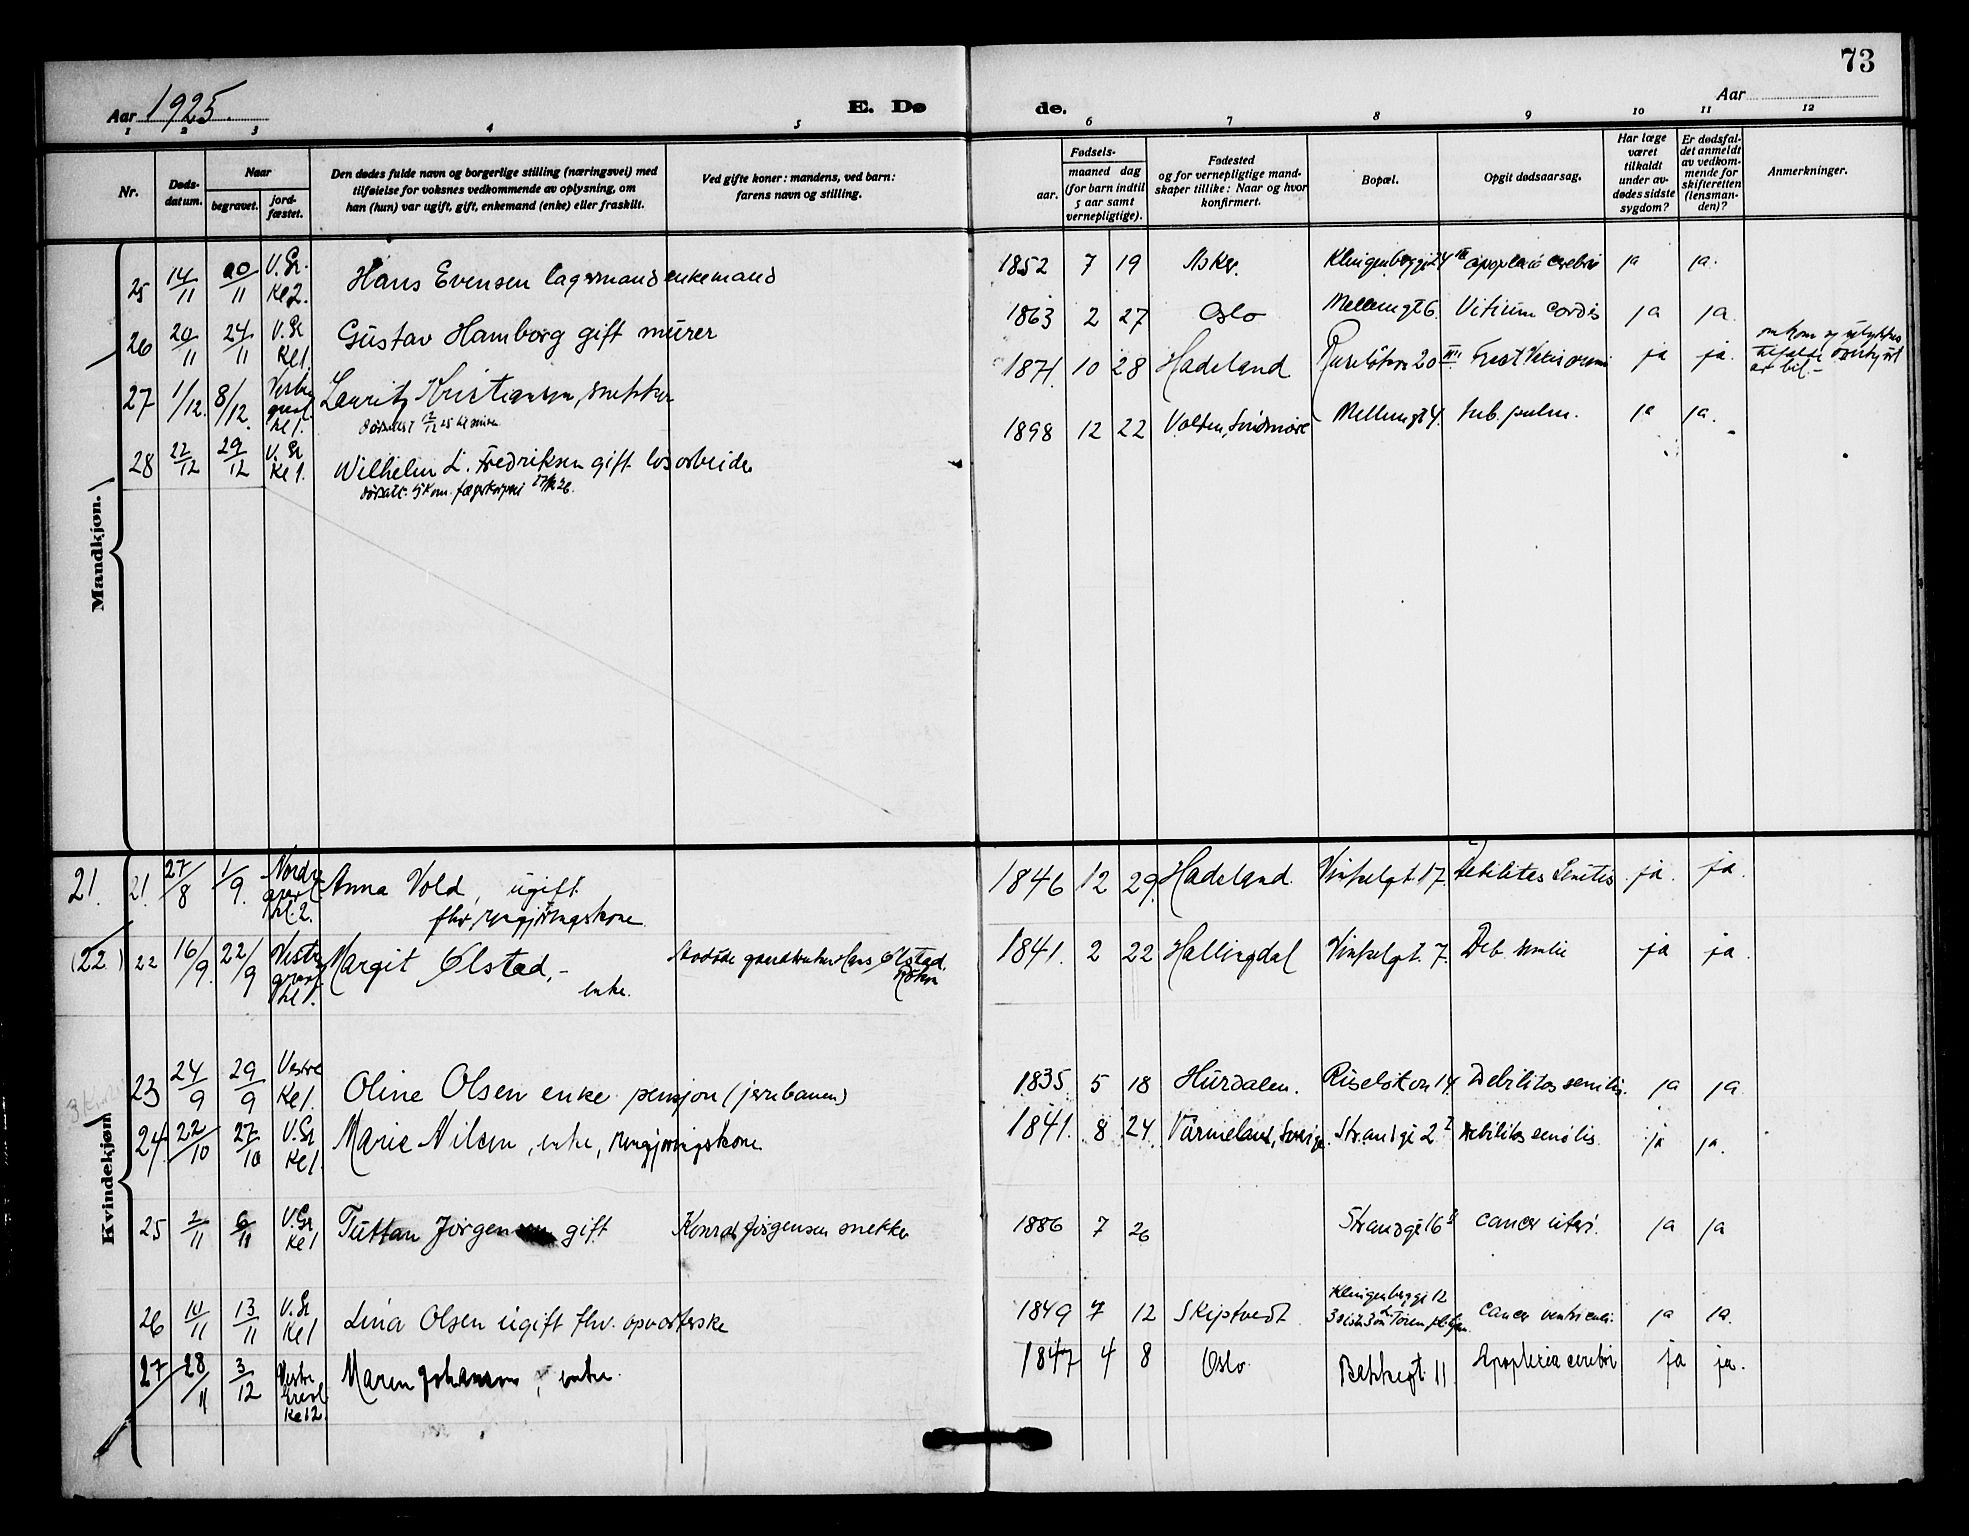 73
Aar 1925.
E. Døde.
Aar
1 2 3 4 5 6 7 8 9 10 11 12
Nr.
Døds-
datum.
Naar
begravet.
jord-
fæstet.
Den dødes fulde navn og borgerlige stilling (næringsvei) med
tilføielse for voksnes vedkommende av oplysning, om
han (hun) var ugift, gift, enkemand (enke) eller fraskilt.
Ved gifte koner: mandens, ved barn:
farens navn og stilling.
Fødsels-
aar.
maaned dag
(for barn indtil
5 aar samt
vernepligtige).
Fødested
og for vernepligtige mand-
skaper tillike: Naar og hvor
konfirmert.
Bopæl.
Opgit dødsaarsag.
Har læge
været
tilkaldt
under av-
dødes sidste
sygdom?
Er dødsfal-
det anmeldt
av vedkom-
mende for
skifteretten
(lensman-
den)?
Anmerkninger.
Mandkjøn.
25 14/11 20/11 V. Gr. Kl 2. Hans Evensen lagermand enkemand 1852 7 19 Asker. Klingenberggt 24 apoplexia cerebri ja ja.
26 20/11 24/11 V. Gr Kl 1. Gustav Hamborg gift murer 1863 2 27 Oslo Mellemgt 6. Vitium cordis ja ja.
27 1/12. 8/12. Vestre gravl. kl 1. Lauritz Kristiansen, snekker 1871. 10 28 Hadeland 20 III. ja ja.
av bil. -
28 22/12 29/12 V. Gr Kl 1. Wilhelm L. Fredriksen gift løsarbeider 1898 12 22 Volden, Søndmøre Mellemgt 4. tub. pulm. ja ja.
Kvindekjøn
21. 21. 27/8 1/9. Nordre gravl. kl. 2. Anna Vold, ugift 1846 12 29. Hadeland. Vinkelgt. 17. Debilitas Senilis ja. ja.
fhv. rengjøringskone
(22) 22 16/9. 22/9 Vestre gravl. kl 1. Margit Ølstad, - enke. Avdøde gaardbruker Hans Ølstad, Røken 1841. 2 22 Hallingdal Vinkelgt. 7. Deb. senilis ja ja.
23 24/9 29/9 Vestre Kl 1. Oline Olsen enke pensjon (jernbanen) 1835. 5 18 Hurdalen. Riseløkvn 14. Debilitas senilis. ja ja
24. 22/10 27/10 V. Gr Kl 1. Marie Nilsen, enke, rengjøringskone 1841. 8 24. Värmeland, Sverige Strandgt 2 I Debilitas senilis. ja ja.
25 2/11 6/11 V. Gr Kl 1 Tuttan Jørgensen gift Konrad Jørgensen snekker 1886 7 26 Strandgt 16 cancer uteri. ja ja
26 10/11 13/11 V. Gr Kl 1 Lina Olsen ugift fhv. opvarterske 1849 7 12 Skiptvedt Klingenberggt 12 cancer ventriculi. ja ja.
27 28/11 3/12 Vestre Gravl Kl 2. Maren Johansen, enke. 1847 4 8 Oslo. Bakkegt. 11 Apoplexia cerebri ja ja.